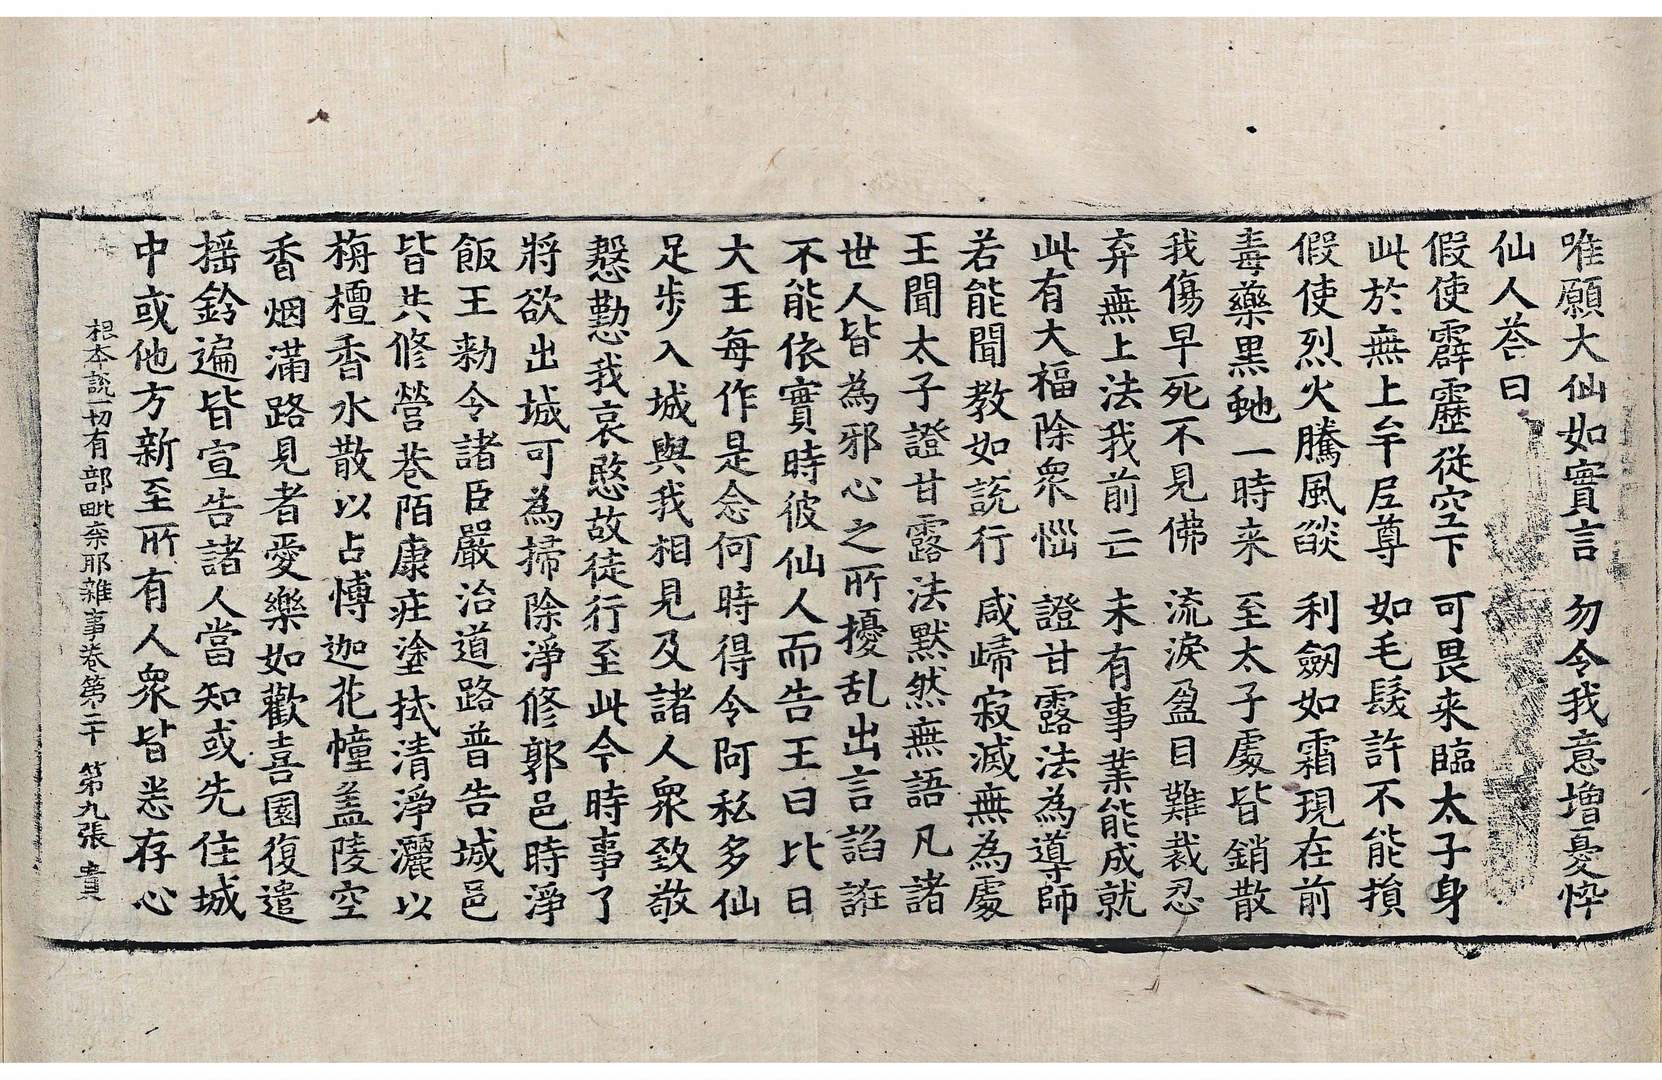 唯願大仙如實言　勿令我意增憂悴
仙人荅曰
假使霹靂從空下　可畏来臨太子身
此於無上牟尼尊　如毛髮許不能損
假使烈火騰風燄　利劒如霜現在前
毒藥黑虵一時来　至太子處皆銷散
我傷早死不見佛　流淚盈目難裁忍
弃無上法我前亡　未有事業能成就
此有大福除衆惱　證甘露法為導師
若能聞教如說行　咸歸寂滅無為處
王聞太子證甘露法默然無語凡諸
世人皆為邪心之所擾乱出言諂誑
不能依實時彼仙人而告王曰比日
大王每作是念何時得令阿私多仙
足步入城與我相見及諸人衆致敬
慇懃我哀愍故徒行至此今時事了
將欲出城可為掃除淨修郭邑時淨
飯王勑令諸臣嚴治道路普告城邑
皆共修營巷陌康庄塗拭清淨灑以
栴檀香水散以占愽迦花幢盖陵空
香烟滿路見者愛樂如歡喜園復遣
摇鈴遍皆宣告諸人當知或先住城
中或他方新至所有人衆皆悉存心
根本說一切有部毗奈耶雜事卷第二十　第九張　貴